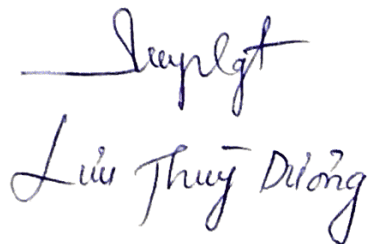 Lưu Thuỳ Dương